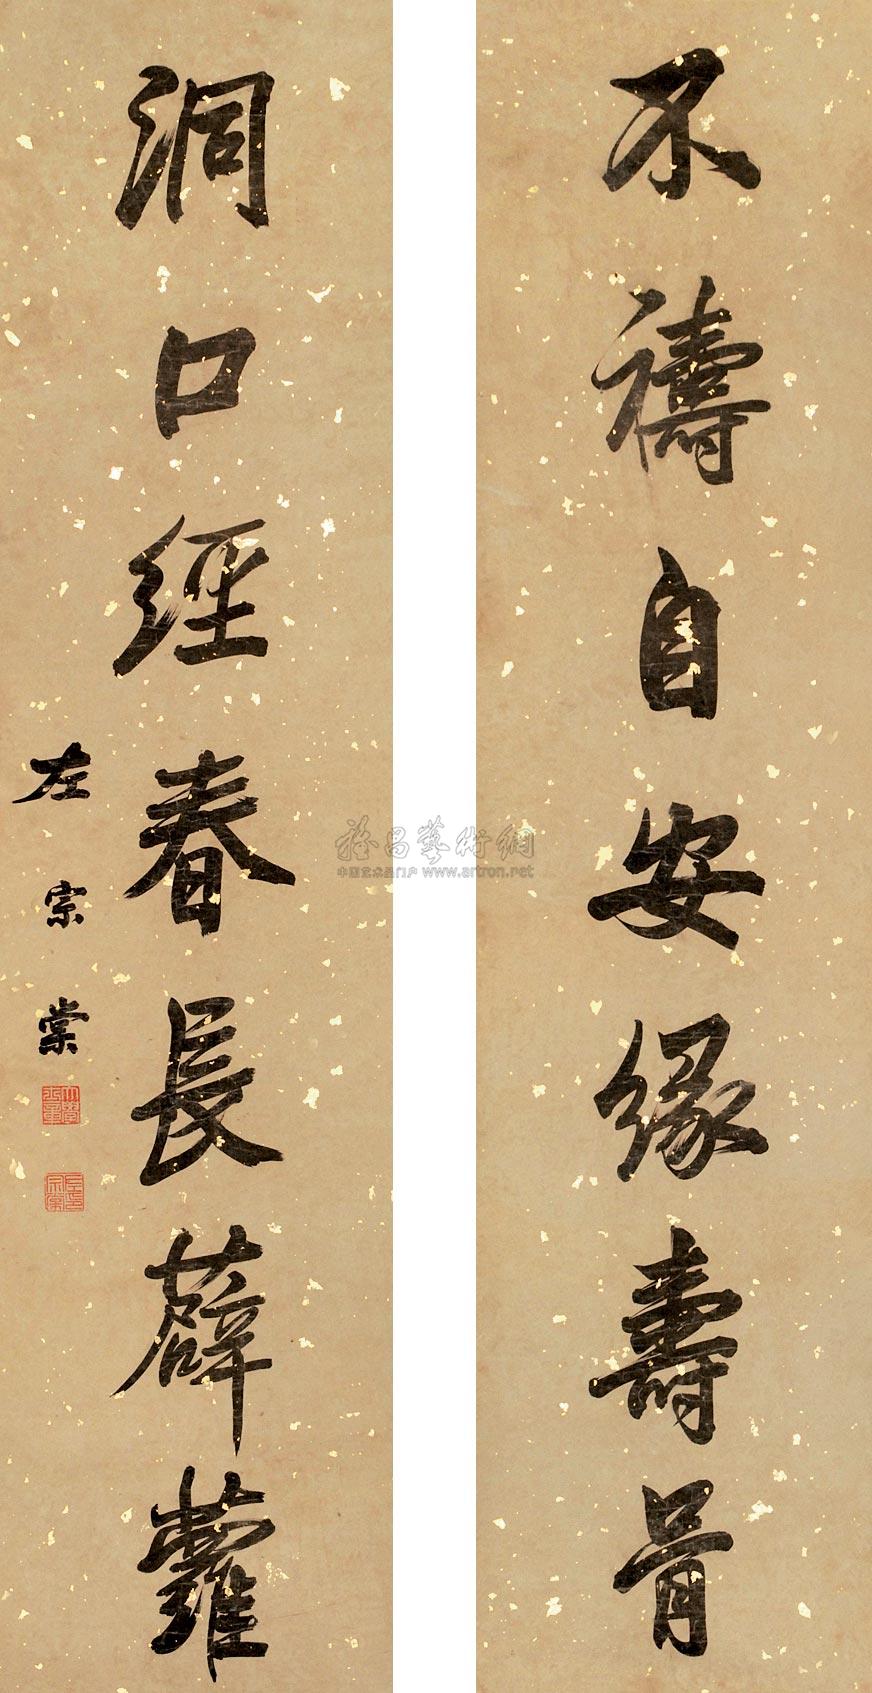 不禱自安緣壽骨
洞口經春長薜蘿
左宗棠
雅昌藝術網
中国艺术品门户 www.artron.net